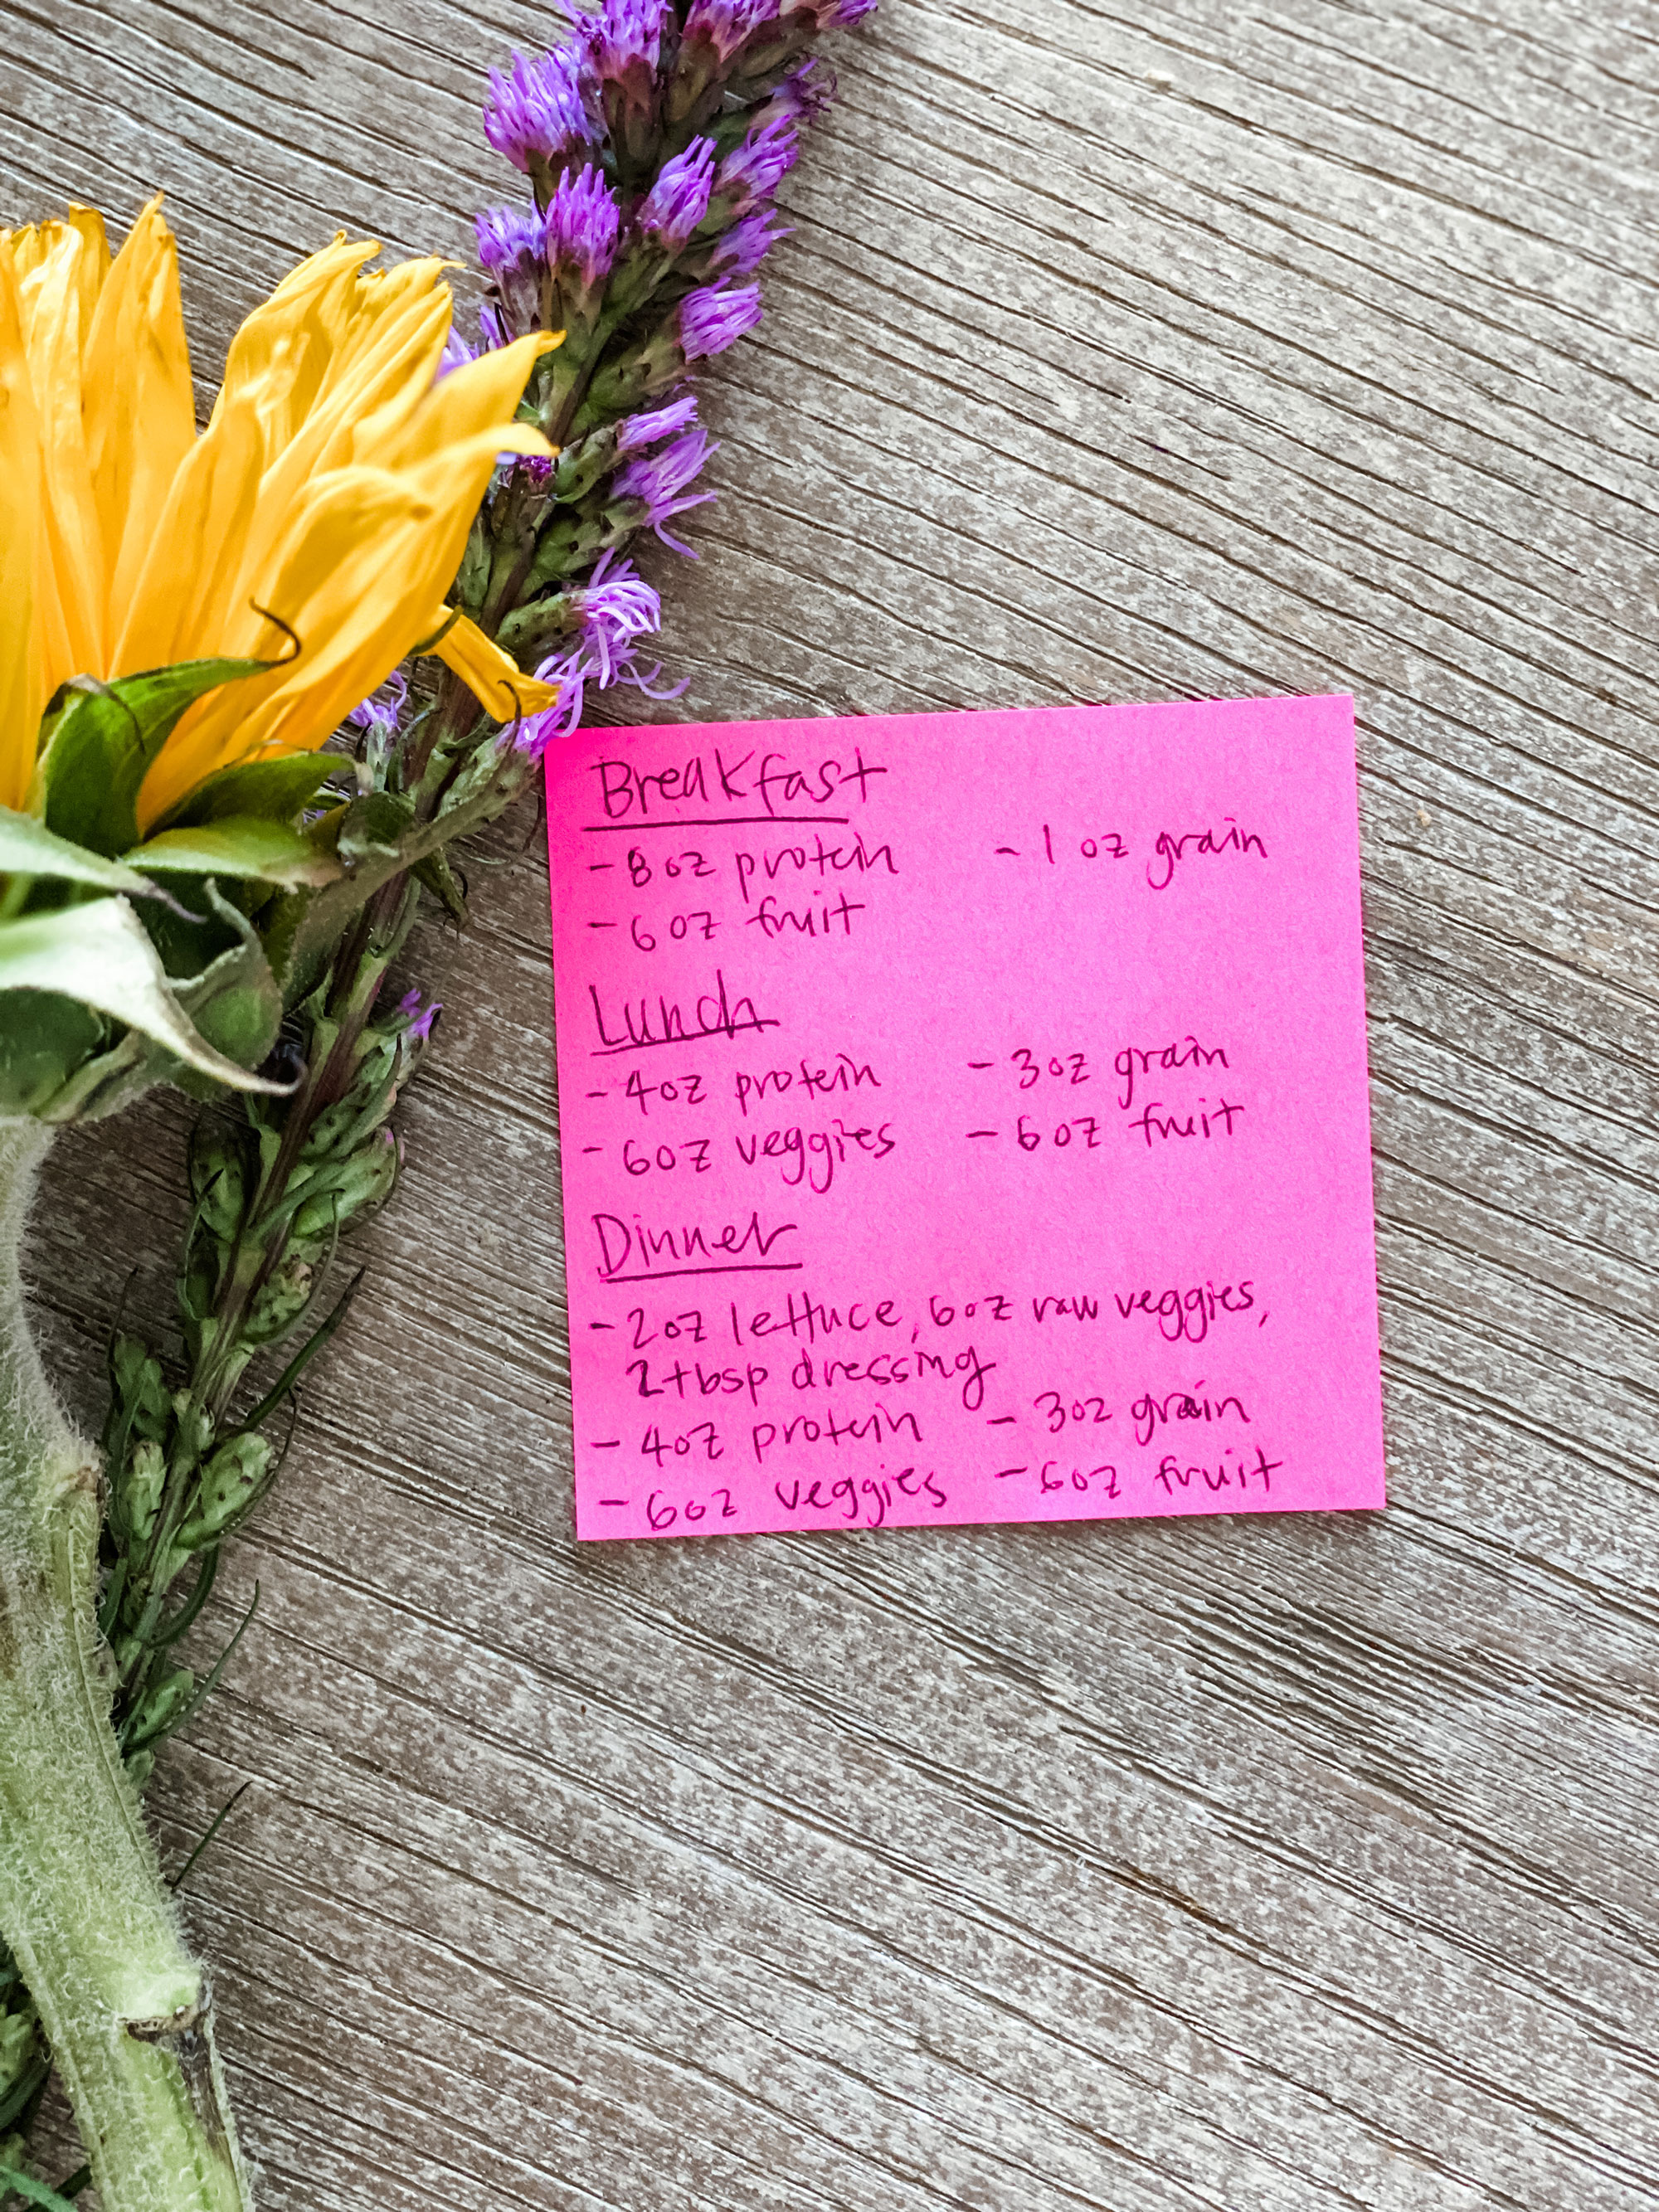 Breakfast
- 8 oz protein - 1 oz grain
- 6 oz fruit
Lunch
- 4oz protein - 3oz grain
- 6oz veggies - 6oz fruit
Dinner
- 2oz lettuce, 6oz raw veggies,
2tbsp dressing
- 4oz protein - 3oz grain
- 6oz veggies - 6oz fruit